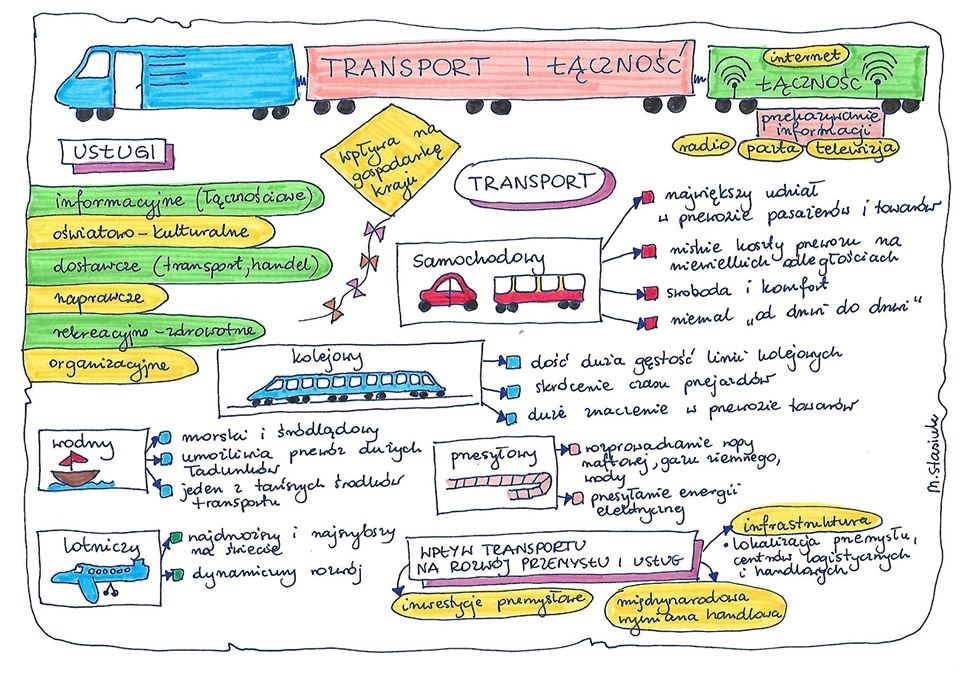 TRANSPORT I ŁĄCZNOŚĆ
internet
ŁĄCZNOŚĆ
przekazywanie
informacji
radio
poczta
telewizja
USŁUGI
informacyjne (łącznościowe)
oświatowo-kulturalne
dostawcze (transport, handel)
naprawcze
rekreacyjno-zdrowotne
organizacyjne
wpływa na
gospodarkę
kraju
TRANSPORT
samochodowy
największy udział
w przewozie pasażerów i towarów
niskie koszty przewozu na
niewielkich odległościach
swoboda i komfort
niemal „od drzwi do drzwi"
kolejowy
dość duża gęstość linii kolejowych
skrócenie czasu przejazdów
duże znaczenie w przewozie towarów
wodny
morski i śródlądowy
umożliwia przewóz dużych
ładunków
jeden z tańszych środków
transportu
przesyłowy
rozprowadzanie ropy
naftowej, gazu ziemnego,
wody
przesyłanie energii
elektrycznej
lotniczy
najdroższy i najszybszy
na świecie
dynamiczny rozwój
WPŁYW TRANSPORTU
NA ROZWÓJ PRZEMYSŁU I USŁUG
inwestycje przemysłowe
międzynarodowa
wymiana handlowa
infrastruktura
• lokalizacja przemysłu,
centrów logistycznych
i handlowych